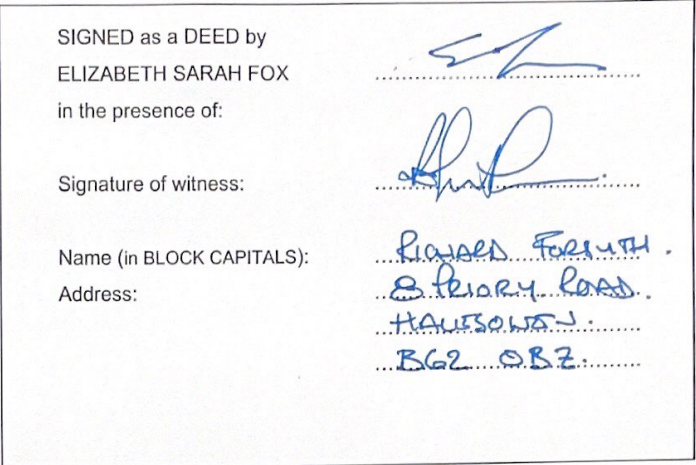 SIGNED as a DEED by
ELIZABETH SARAH FOX
in the presence of:
Signature of witness:
Name (in BLOCK CAPITALS): RICHARD FORSYTH.
Address: 8 PRIORY ROAD.
HALESOWEN.
B62 0BZ.